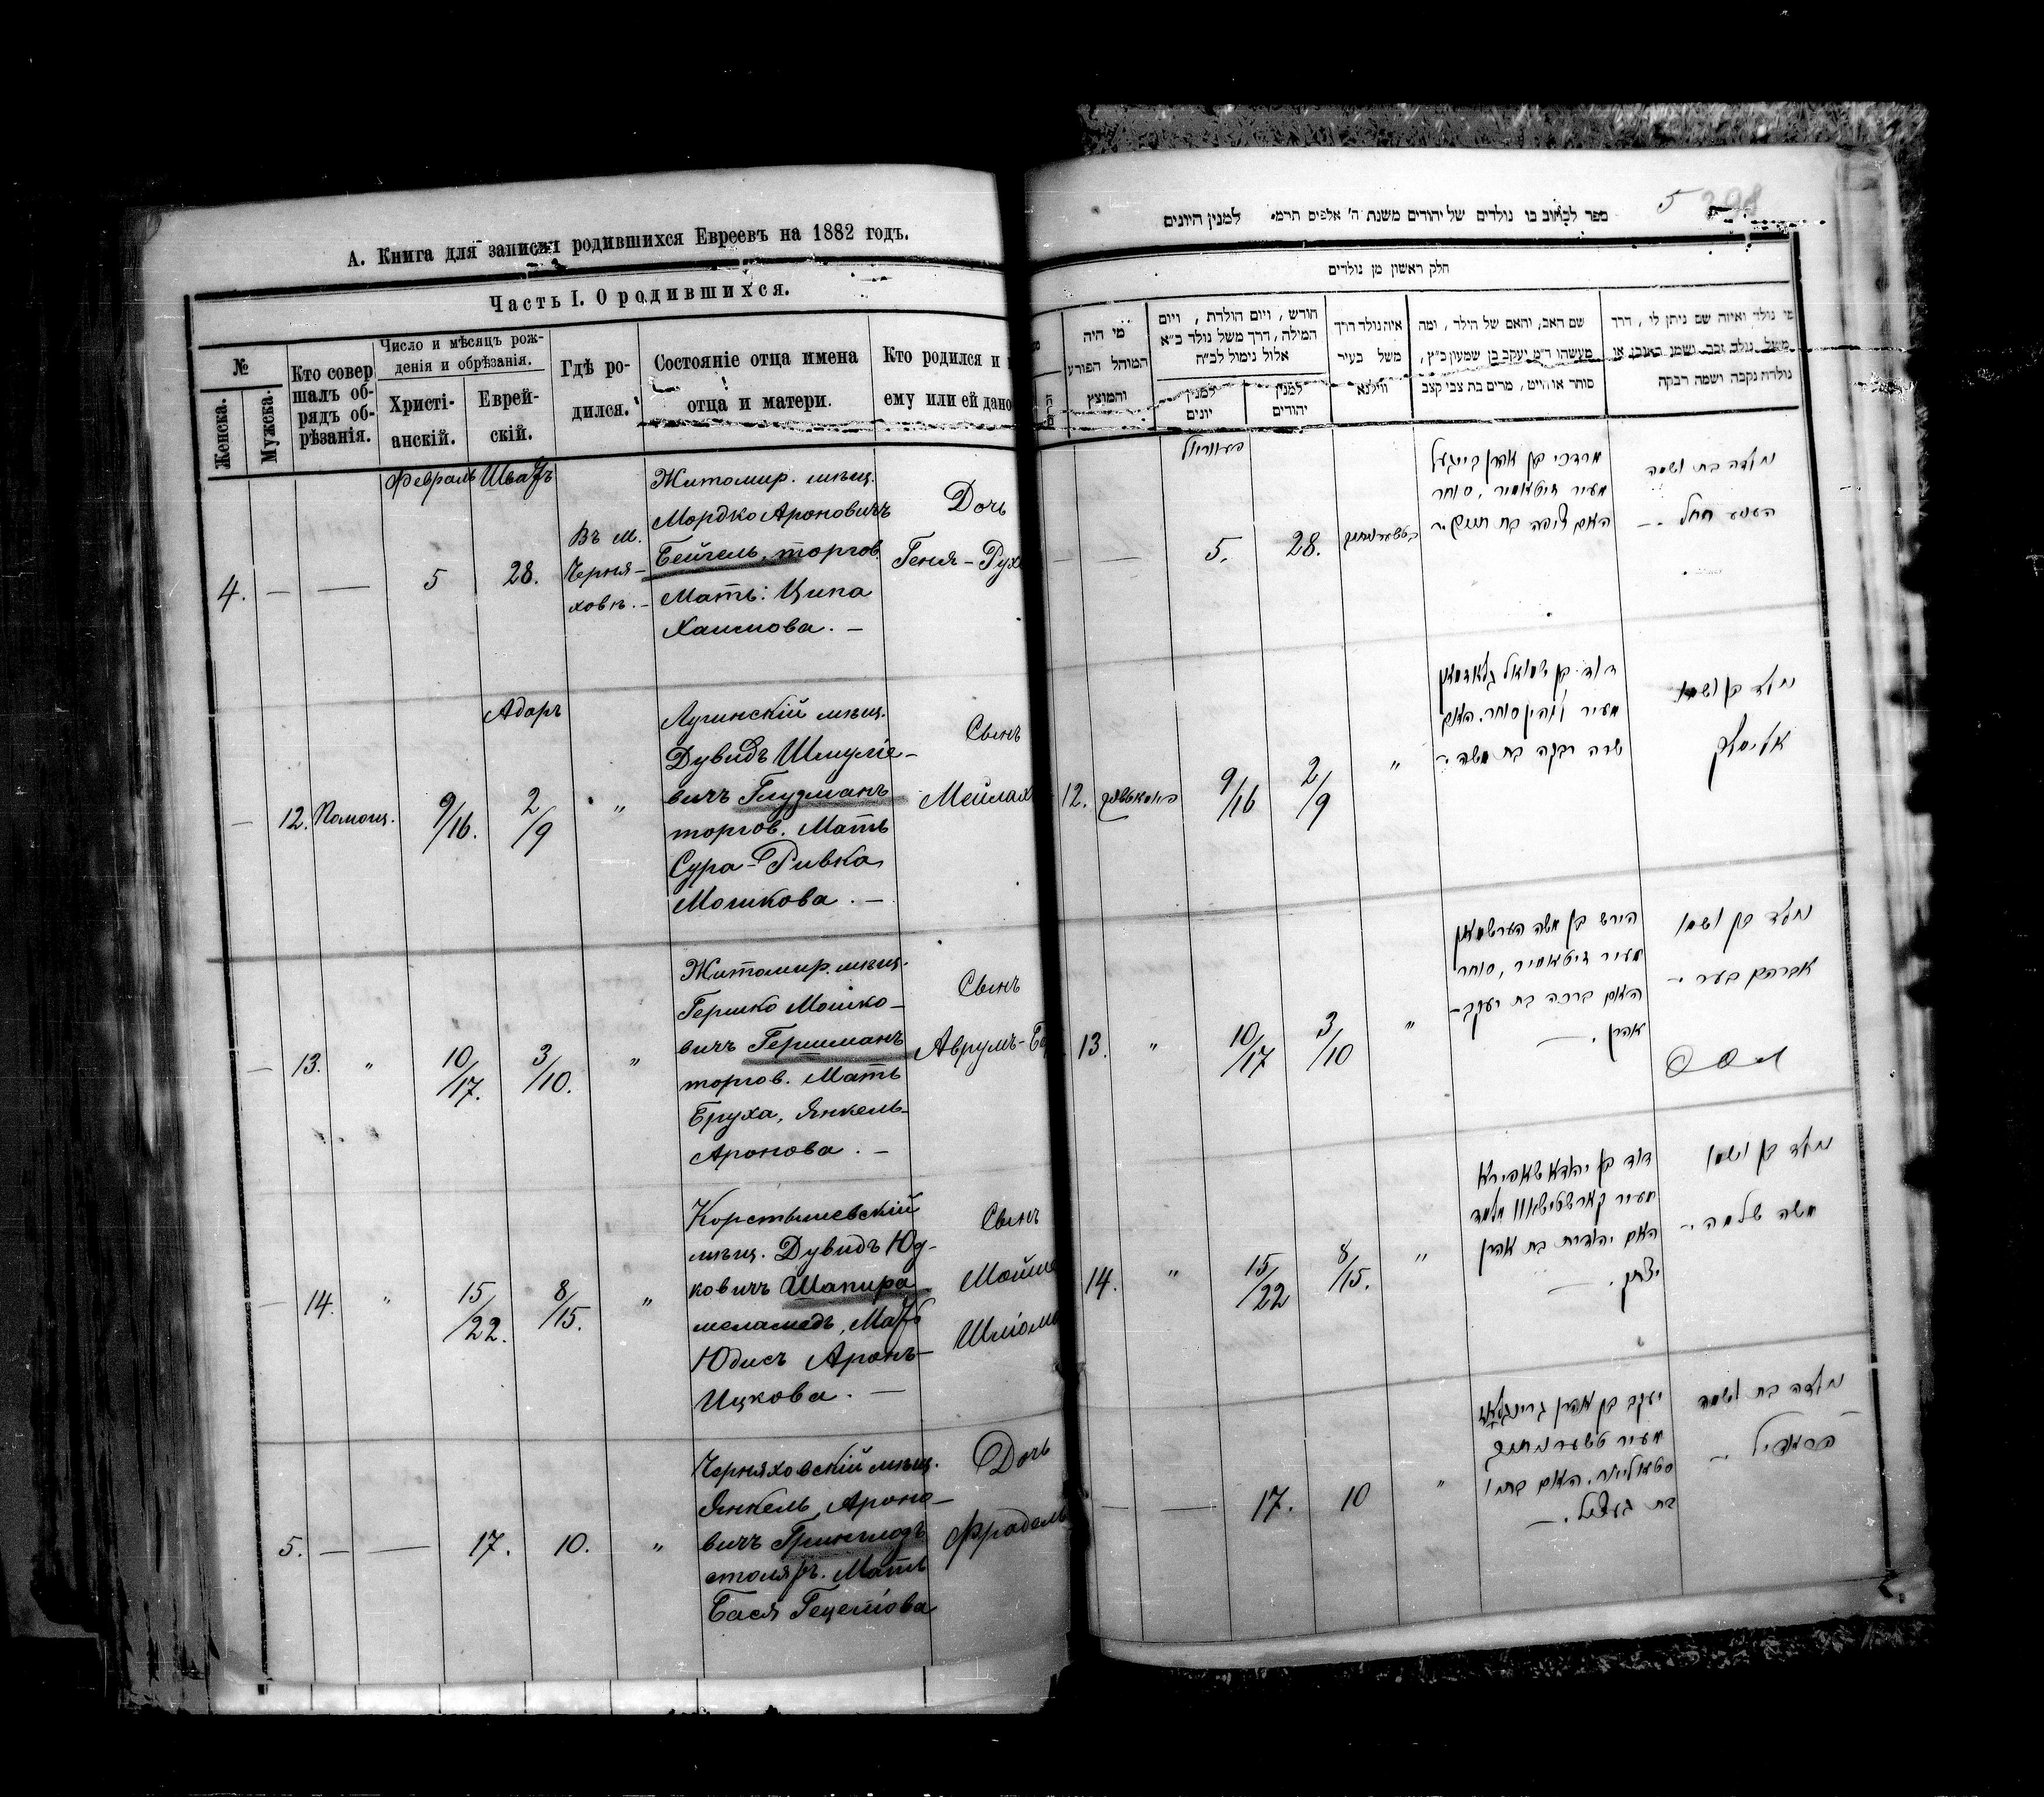 А. Книга для записки родившихся Евреевъ на 1882 годъ.
Часть I. О родившихся.
№
Женска.
Мужска.
Кто совер
шалъ об-
рядъ об-
рѣзанія.
Число и мѣсяцъ рож-
денія и обрѣзанія.
Христі-
анскій.
Еврей-
скій.
Гдѣ ро-
дился.
Состояніе отца имена
отца и матери.
Кто родился и
ему или ей дано
4. — —
Февраль
5
Шватъ
28.
Въ м.
Черня-
ховѣ. –
Житомир. мѣщ.
Мордко Ароновичъ
Бейгель, торгов.
Мать: Ципа
Хаимова. —
Дочь
Геня-Рух
— 12. Помощ.
9/16.
Адаръ
2/9
"
Лугинскій мѣщ.
Дувидъ Шмуліе-
вичъ Глузманъ
торгов. Мать
Сура-Ривка
Мошкова. —
Сынъ
Мейлах
— 13. "
10/17.
3/10.
"
Житомир. мѣщ.
Гершко Мошко-
вичъ Гершманъ
торгов. Мать
Бруха, Янкель-
Аронова. —
Сынъ
Аврумъ-Бе
— 14. "
15/22.
8/15.
"
Коростышевскій
мѣщ. Дувидъ Юд-
ковичъ Шапира
меламедъ, Мать
Юдисъ Аронъ-
Ицкова. —
Сынъ
Мойше
Шліома
5. — —
17.
10.
"
Черняховскій мѣщ.
Янкель Ароно-
вичъ Гринглозъ
столяръ. Мать
Бася Гецелюва
Дочь
Фрадель
5
ספר לכתוב בו נולדים של יהודים משנת ה' אלפים תרמ" למנין היונים
חלק ראשון מן נולדים
מי נולד ואיזה שם ניתן לו, דרך
משל נולד זכר ושמו ראובן או
נולדה נקבה ושמה רבקה
שם האב, והאם של הילד, ומה
מעשהו ד"מ יעקב בן שמעון כ"ץ,
סוחר או חייט, מרים בת צבי קצב
איה נולד דרך
משל בעיר
ווילנא
חודש, ויום הולדת, ויום
המילה, דרך משל נולד כ"א
אלול נימול לכ"ח
למנין
יהודים
למנין
יונים
מי היה
המוהל הפורע
והמוצץ
נולדה בת ושמה
העניע רחל –
מרדכי בן אהרן בייגעל
מעיר זיטאמיר, סוחר
האם ציפה בת חיים –
28.
5.
— —
נולד בן ושמו
אלימלך
דוד בן שמואל גלאזמאן
מעיר לוגין סוחר. האם
שרה רבקה בת משה –
"
2/9
9/16
12.
נולד בן ושמו
אברהם בער –
הירש בן משה הערשמאן
מעיר זיטאמיר, סוחר
האם ברכה בת יעקב-
אהרן. —
"
3/10
10/17
"
13.
נולד בן ושמו
משה שלמה –
דוד בן יהודא שאפירא
מעיר קארסטישאוו מלמד
האם יהודית בת אהרן
יצחק. —
"
8/15.
15/22
"
14.
נולדה בת ושמה
פראדיל –
יעקב בן אהרן גרינגלאז
מעיר טשערניחוב
סטאליער. האם בתי'
בת געציל. —
"
10
17.
— —